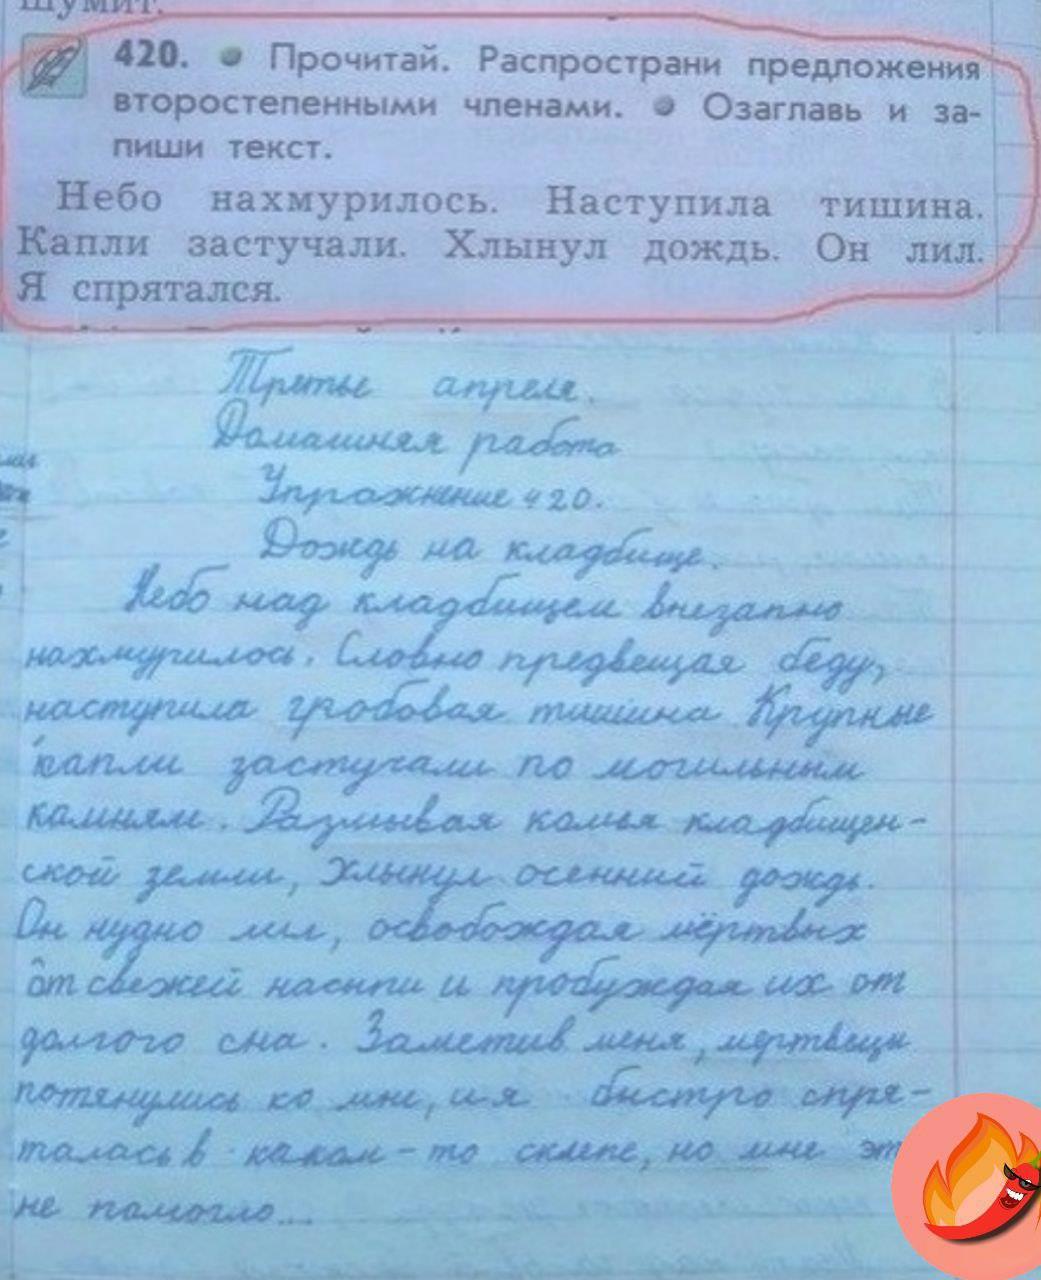 шумит.
420. • Прочитай. Распространи предложения
второстепенными членами. • Озаглавь и за-
пиши текст.
Небо нахмурилось. Наступила тишина.
Капли застучали. Хлынул дождь. Он лил.
Я спрятался.
Третье апреля.
Домашняя работа
Упражнение 420.
Дождь на кладбище.
Небо над кладбищем внезапно
нахмурилось. Словно предвещая беду,
наступила гробовая тишина Крупные
капли застучали по могильным
камням. Размывая комья кладбищен-
ской земли, хлынул осенний дождь.
Он нудно лил, освобождая мёртвых
от свежей насыпи и пробуждая их от
долгого сна. Заметив меня, мертвецы
потянулись ко мне, и я быстро спря-
талась в каком-то склепе, но мне эт
не помогло...